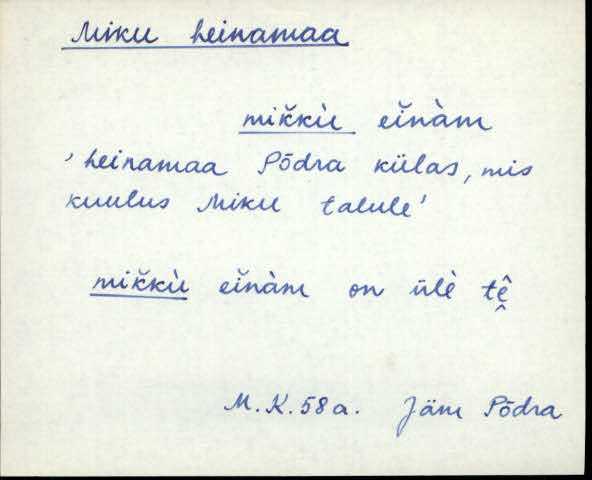 Miku heinamaa
mik̆kù eĭnàm
'heinamaa Põdra külas, mis
kuulus Miku talule'
mik̆kù eĭnàm on ūlè tê̬
M.K.58a. Jäm Põdra